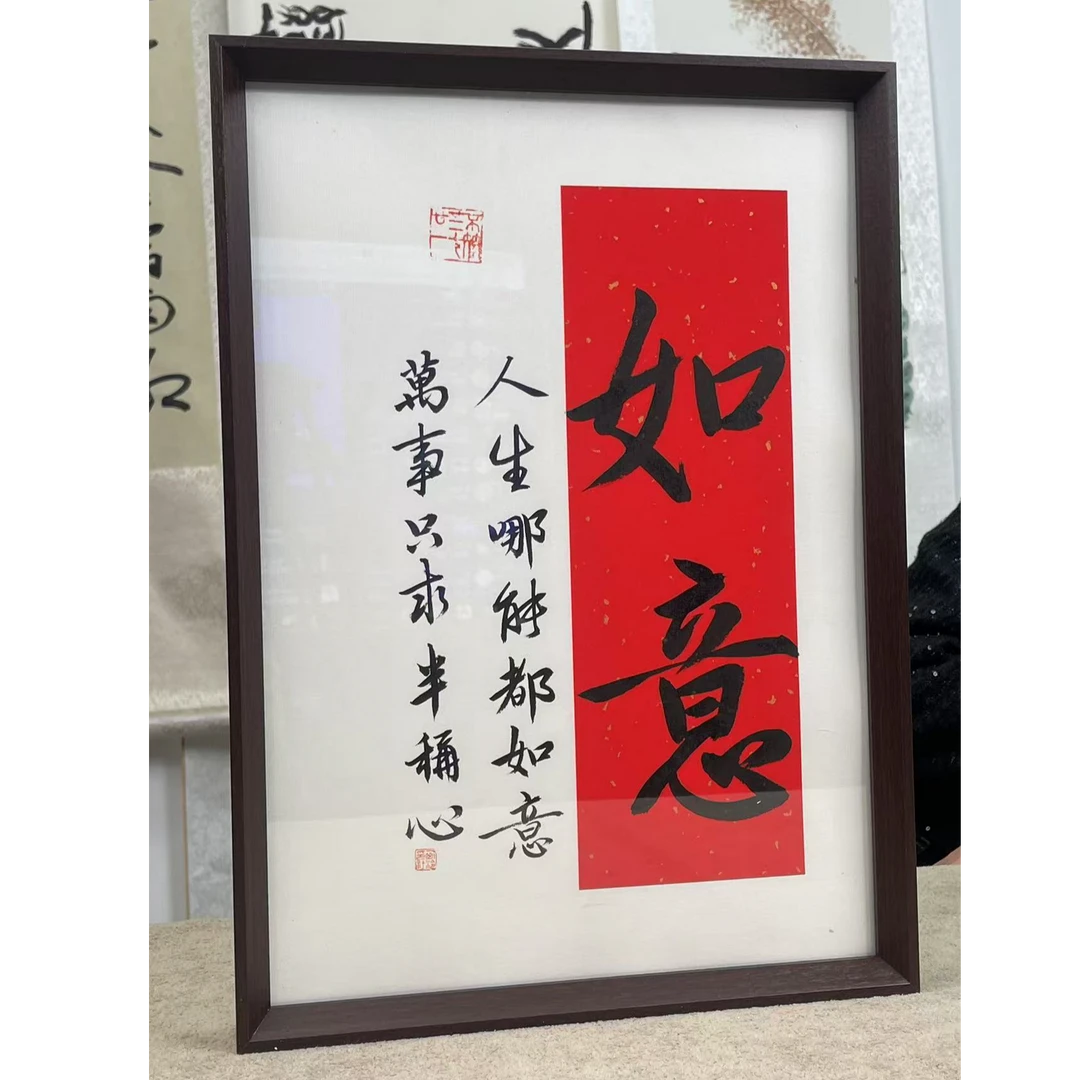 如意
人生哪能都如意
萬事只求半稱心